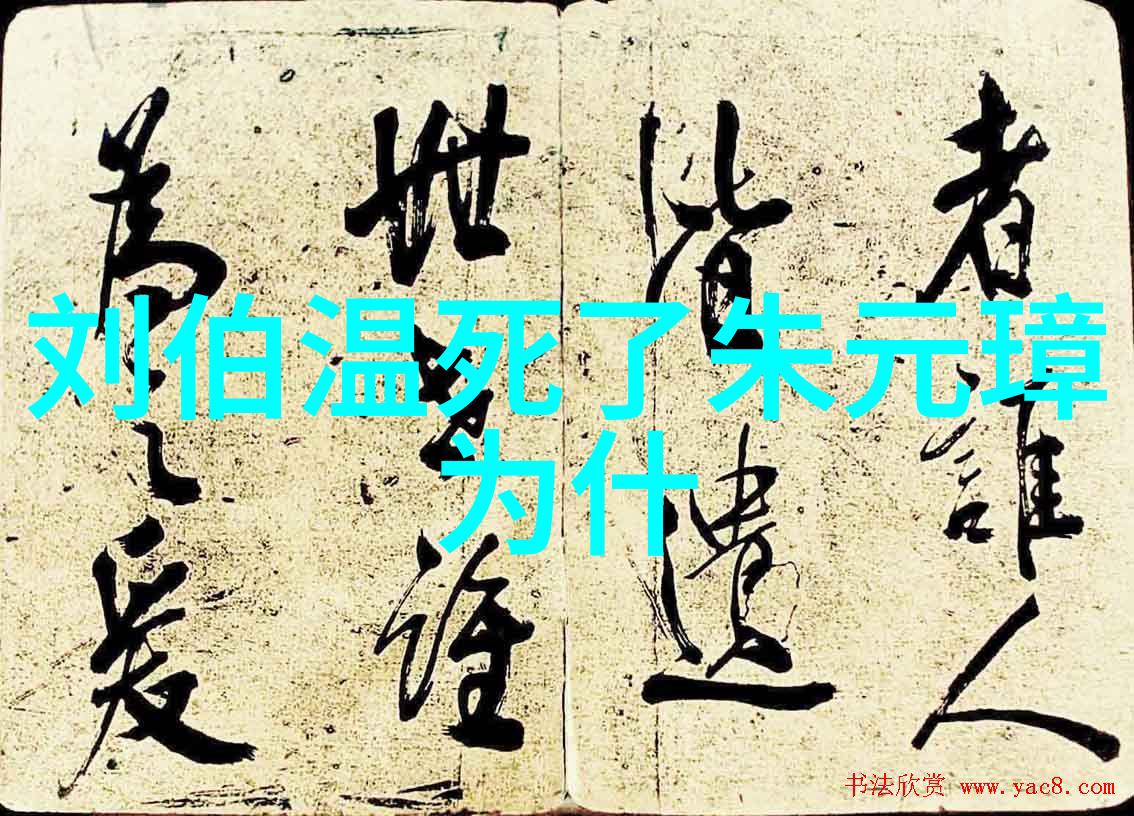 刘伯温死了朱元璋
为什
者誰人
皆遺
世誰
為之爰
书法欣赏 www.yac8.com